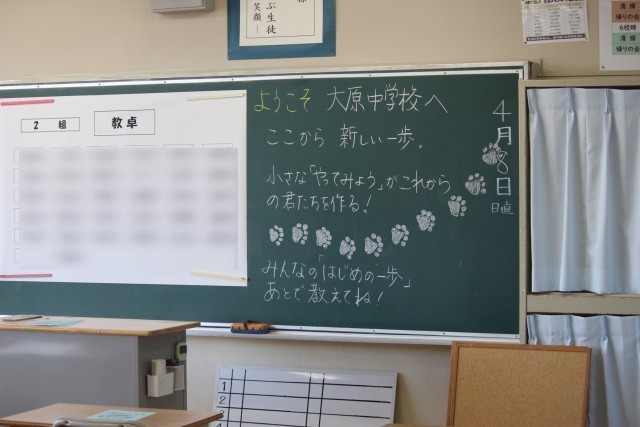 ぶ生徒
笑顔ー
清掃
帰りの会
6校時
清掃
帰りの会
2組
教卓
ようこそ 大原中学校へ
ここから 新しい一歩。
小さな「やってみよう」がこれから
の君たちを作る!
みんなの「はじめの一歩」
あとで教えてね!
4月8日
日直
1
2
3